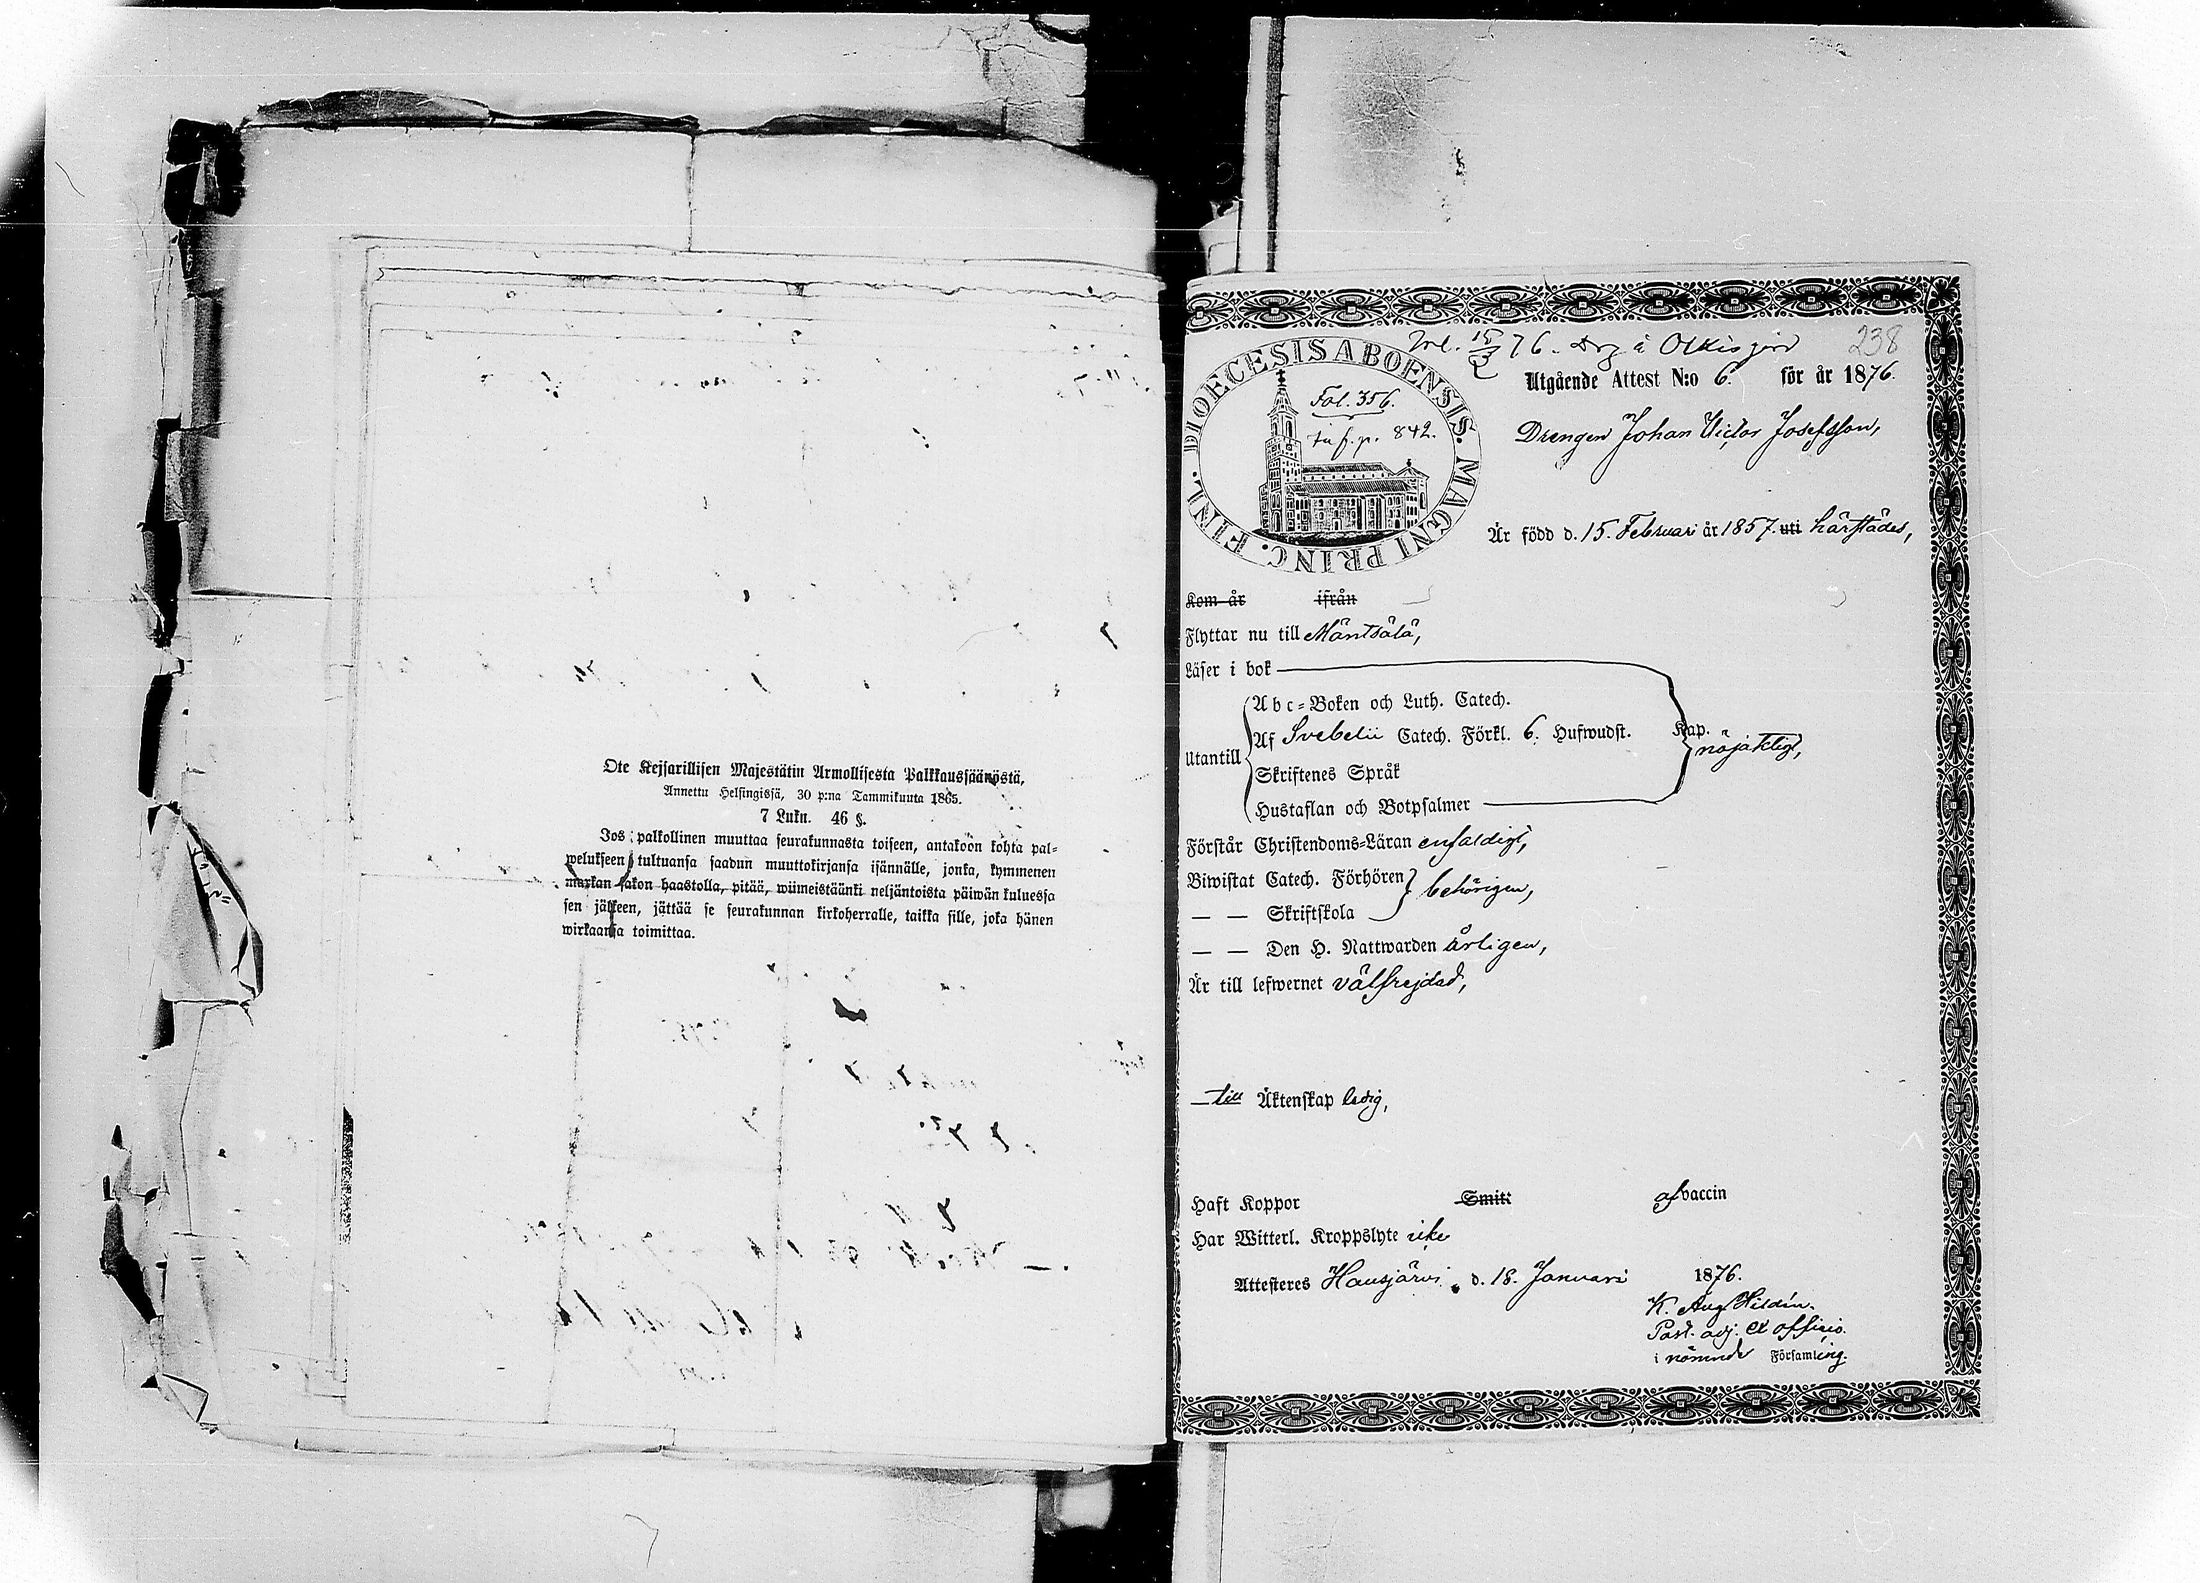 Ote Kejsarillisen Majestätin Armollisesta Palkkaussäänöstä,
Annettu Helsingissä, 30 p:na Tammikuuta 1865.
7 Luku. 46 §.
Jos palkollinen muuttaa seurakunnasta toiseen, antakoon kohta pal-
welukseen tultuansa saadun muuttokirjansa isännälle, jonka, kymmenen
markan sakon haastolla, pitää, wiimeistäänki neljäntoista päiwän kuluessa
sen jälkeen, jättää se seurakunnan kirkoherralle, taikka sille, joka hänen
wirkaansa toimittaa.
238
76
Utgående Attest N:o 6. för år 1876.
DIOECESIS ABOENSIS. MAGNI PRINC. FINL.
Fol. 356.
inf. p. 842.
Drengen Johan Victor Josefsson,
Är född d. 15. Februari år 1857. uti härstädes,
Kom år ifrån
Flyttar nu till Mäntsälä,
Läser i bok
Abc-Boken och Luth. Catech.
Utantill
Af Svebelii Catech. Förkl. 6. Hufwudst. Kap.
nöjaktigt,
Skriftenes Språk
Hustaflan och Botpsalmer
Förstår Christendoms-Läran enfaldigt,
Biwistat Catech. Förhören
behörigen,
— — Skriftskola
— — Den H. Nattwarden årligen,
Är till lefwernet välfrejdad,
— till Äktenskap ledig,
Haft Koppor Smit: af vaccin
Har Witterl. Kroppslyte icke
Attesteres Hausjärvi d. 18. Januari 1876.
K. Aug.
Past. adj. ex officio.
i nämnde Församling.